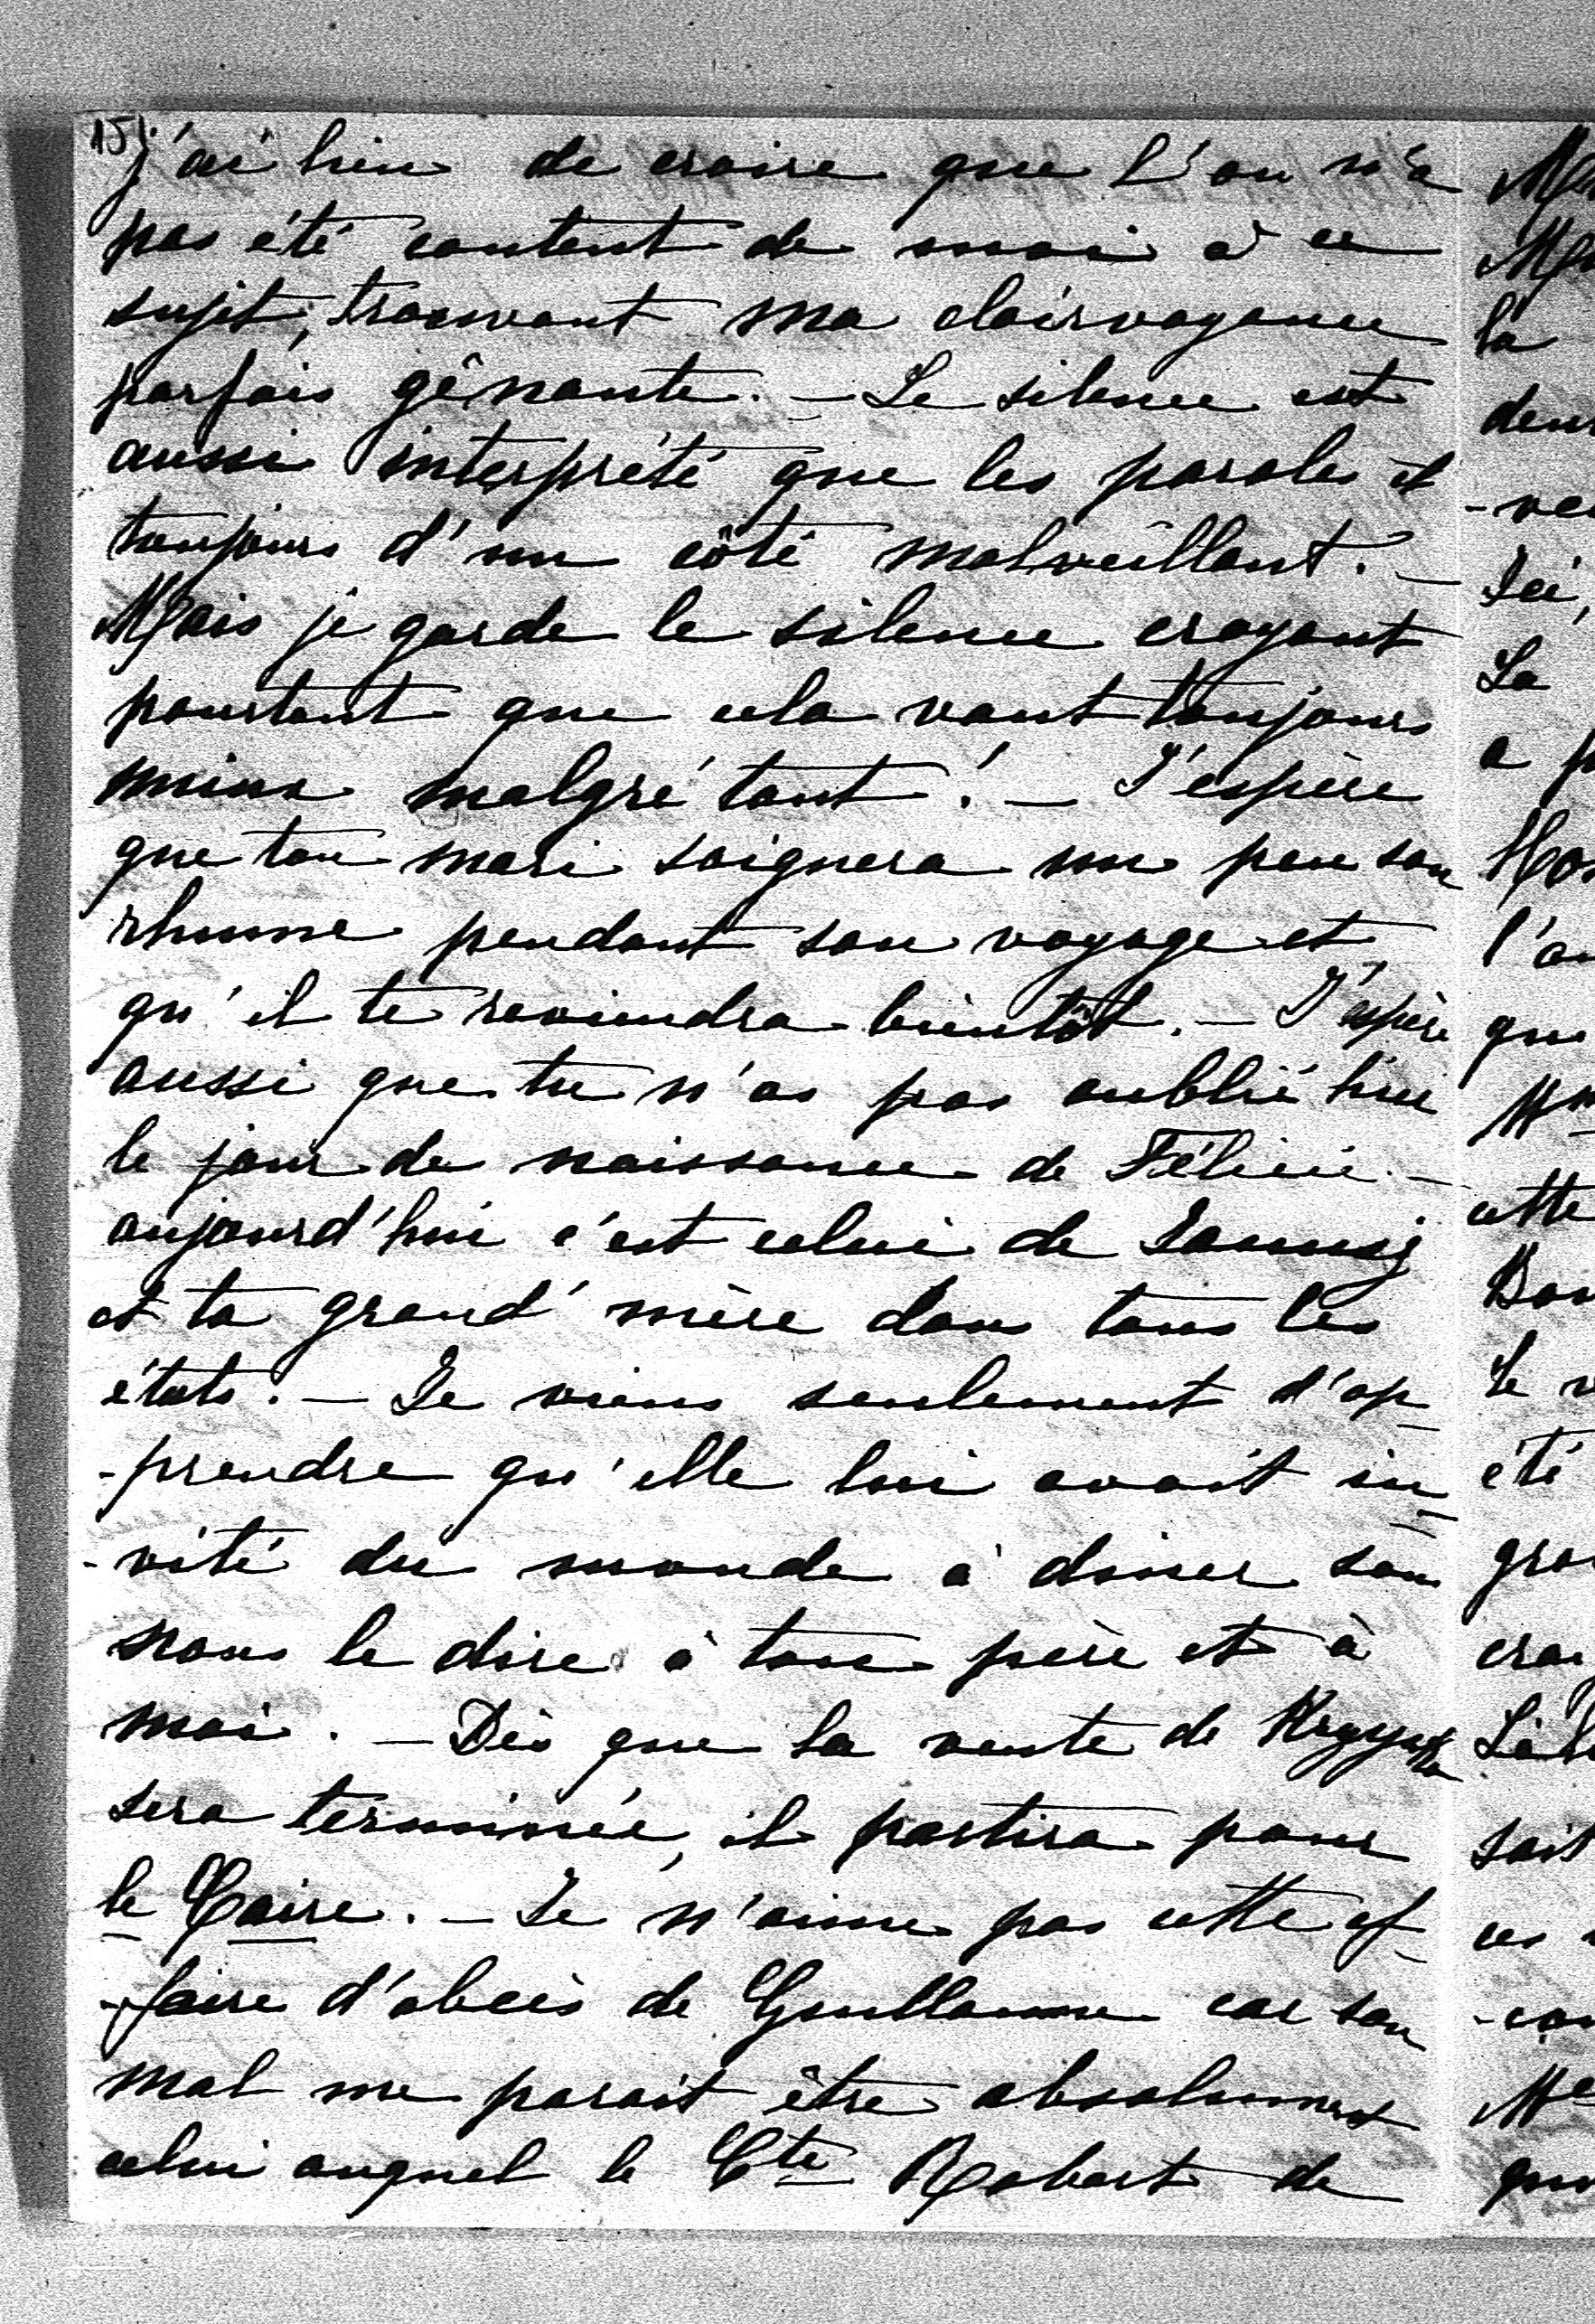 151.
j'ai lieu de croire que l'on n'a
pas été content de moi à ce
sujet, trouvant ma clairvoyance
parfois gênante. — Le silence est
aussi interprété que les paroles et
toujours d'un côté malveillant. —
Mais je garde le silence croyant
pourtant que cela vaut toujours
mieux malgré tout! — J'espère
que ton mari soignera un peu son
rhume pendant son voyage et
qu'il te reviendra bientôt. — J'espère
aussi que tu n'as pas oublié hier
le jour de naissance de Félicie —
aujourd'hui c'est celui de
et ta grand'mère dans tous les
états. — Je viens seulement d'ap-
-prendre qu'elle lui avait in-
-vité du monde à diner sans
nous le dire à ton père et à
moi. — Dès que la vente de
sera terminée, il partira pour
le Caire. — Je n'aime pas cette af-
-faire d'abcès de Guillaume car son
mal me parait être absolument
celui auquel le Cte Robert de